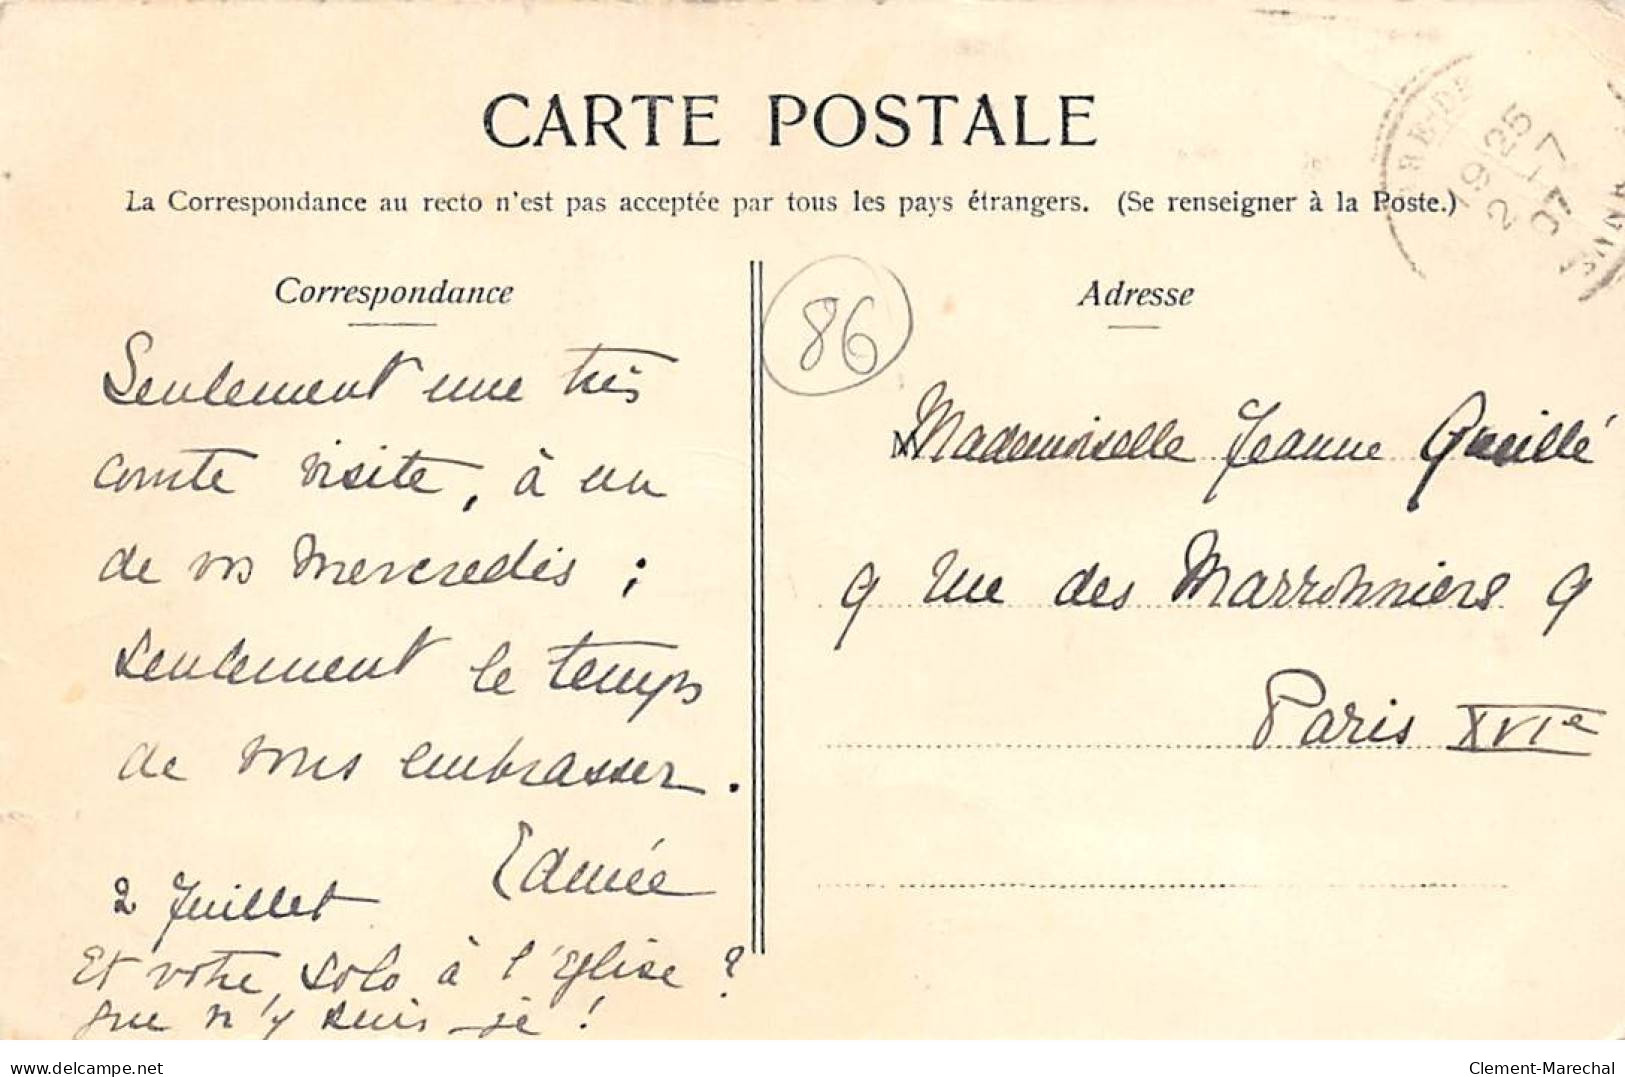 CARTE POSTALE
La Correspondance au recto n'est pas acceptée par tous les pays étrangers. (Se renseigner à la Poste.)
19 25
2 - 7
07
Correspondance
Seulement une très
courte visite, à un
de vos Mercredis ;
seulement le temps
de vous embrasser.
Edmée
2 Juillet
Et votre solo à l'Eglise ?
que n'y suis-je !
86
Adresse
Mademoiselle Jeanne Queillé
9 rue des Marronniers 9
Paris XVIe
delcampe.net
Clement-Marechal